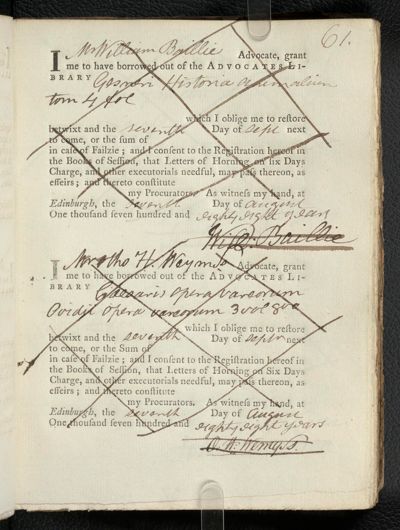 61.
I Mr William Baillie Advocate, grant
me to have borrowed out of the ADVOCATES LI-
BRARY Gesneri Historia animalium
tom 4 fol
which I oblige me to restore
betwixt and the seventh Day of Sepr next
to come, or the sum of
in case of Failzie; and I consent to the Registration hereof in
the Books of Session, that Letters of Horning on six Days
Charge, and other executorials needful, may pass thereon, as
effeirs; and thereto constitute
my Procurators. As witness my hand, at
Edinburgh, the seventh Day of August
One thousand seven hundred and eighty eight years
Will Baillie
I Mr H Wemyss Advocate, grant
me to have borrowed out of the ADVOCATES LI-
BRARY Caesaris opera variorum
Ovidii opera variorum 3 vol 8vo
which I oblige me to restore
betwixt and the seventh Day of Sepr next
to come, or the Sum of
in case of Failzie; and I consent to the Registration hereof in
the Books of Session, that Letters of Horning on Six Days
Charge, and other executorials needful, may pass thereon, as
effeirs; and thereto constitute
my Procurators. As witness my hand, at
Edinburgh, the seventh Day of August
One thousand seven hundred and eighty eight years
Wemyss.